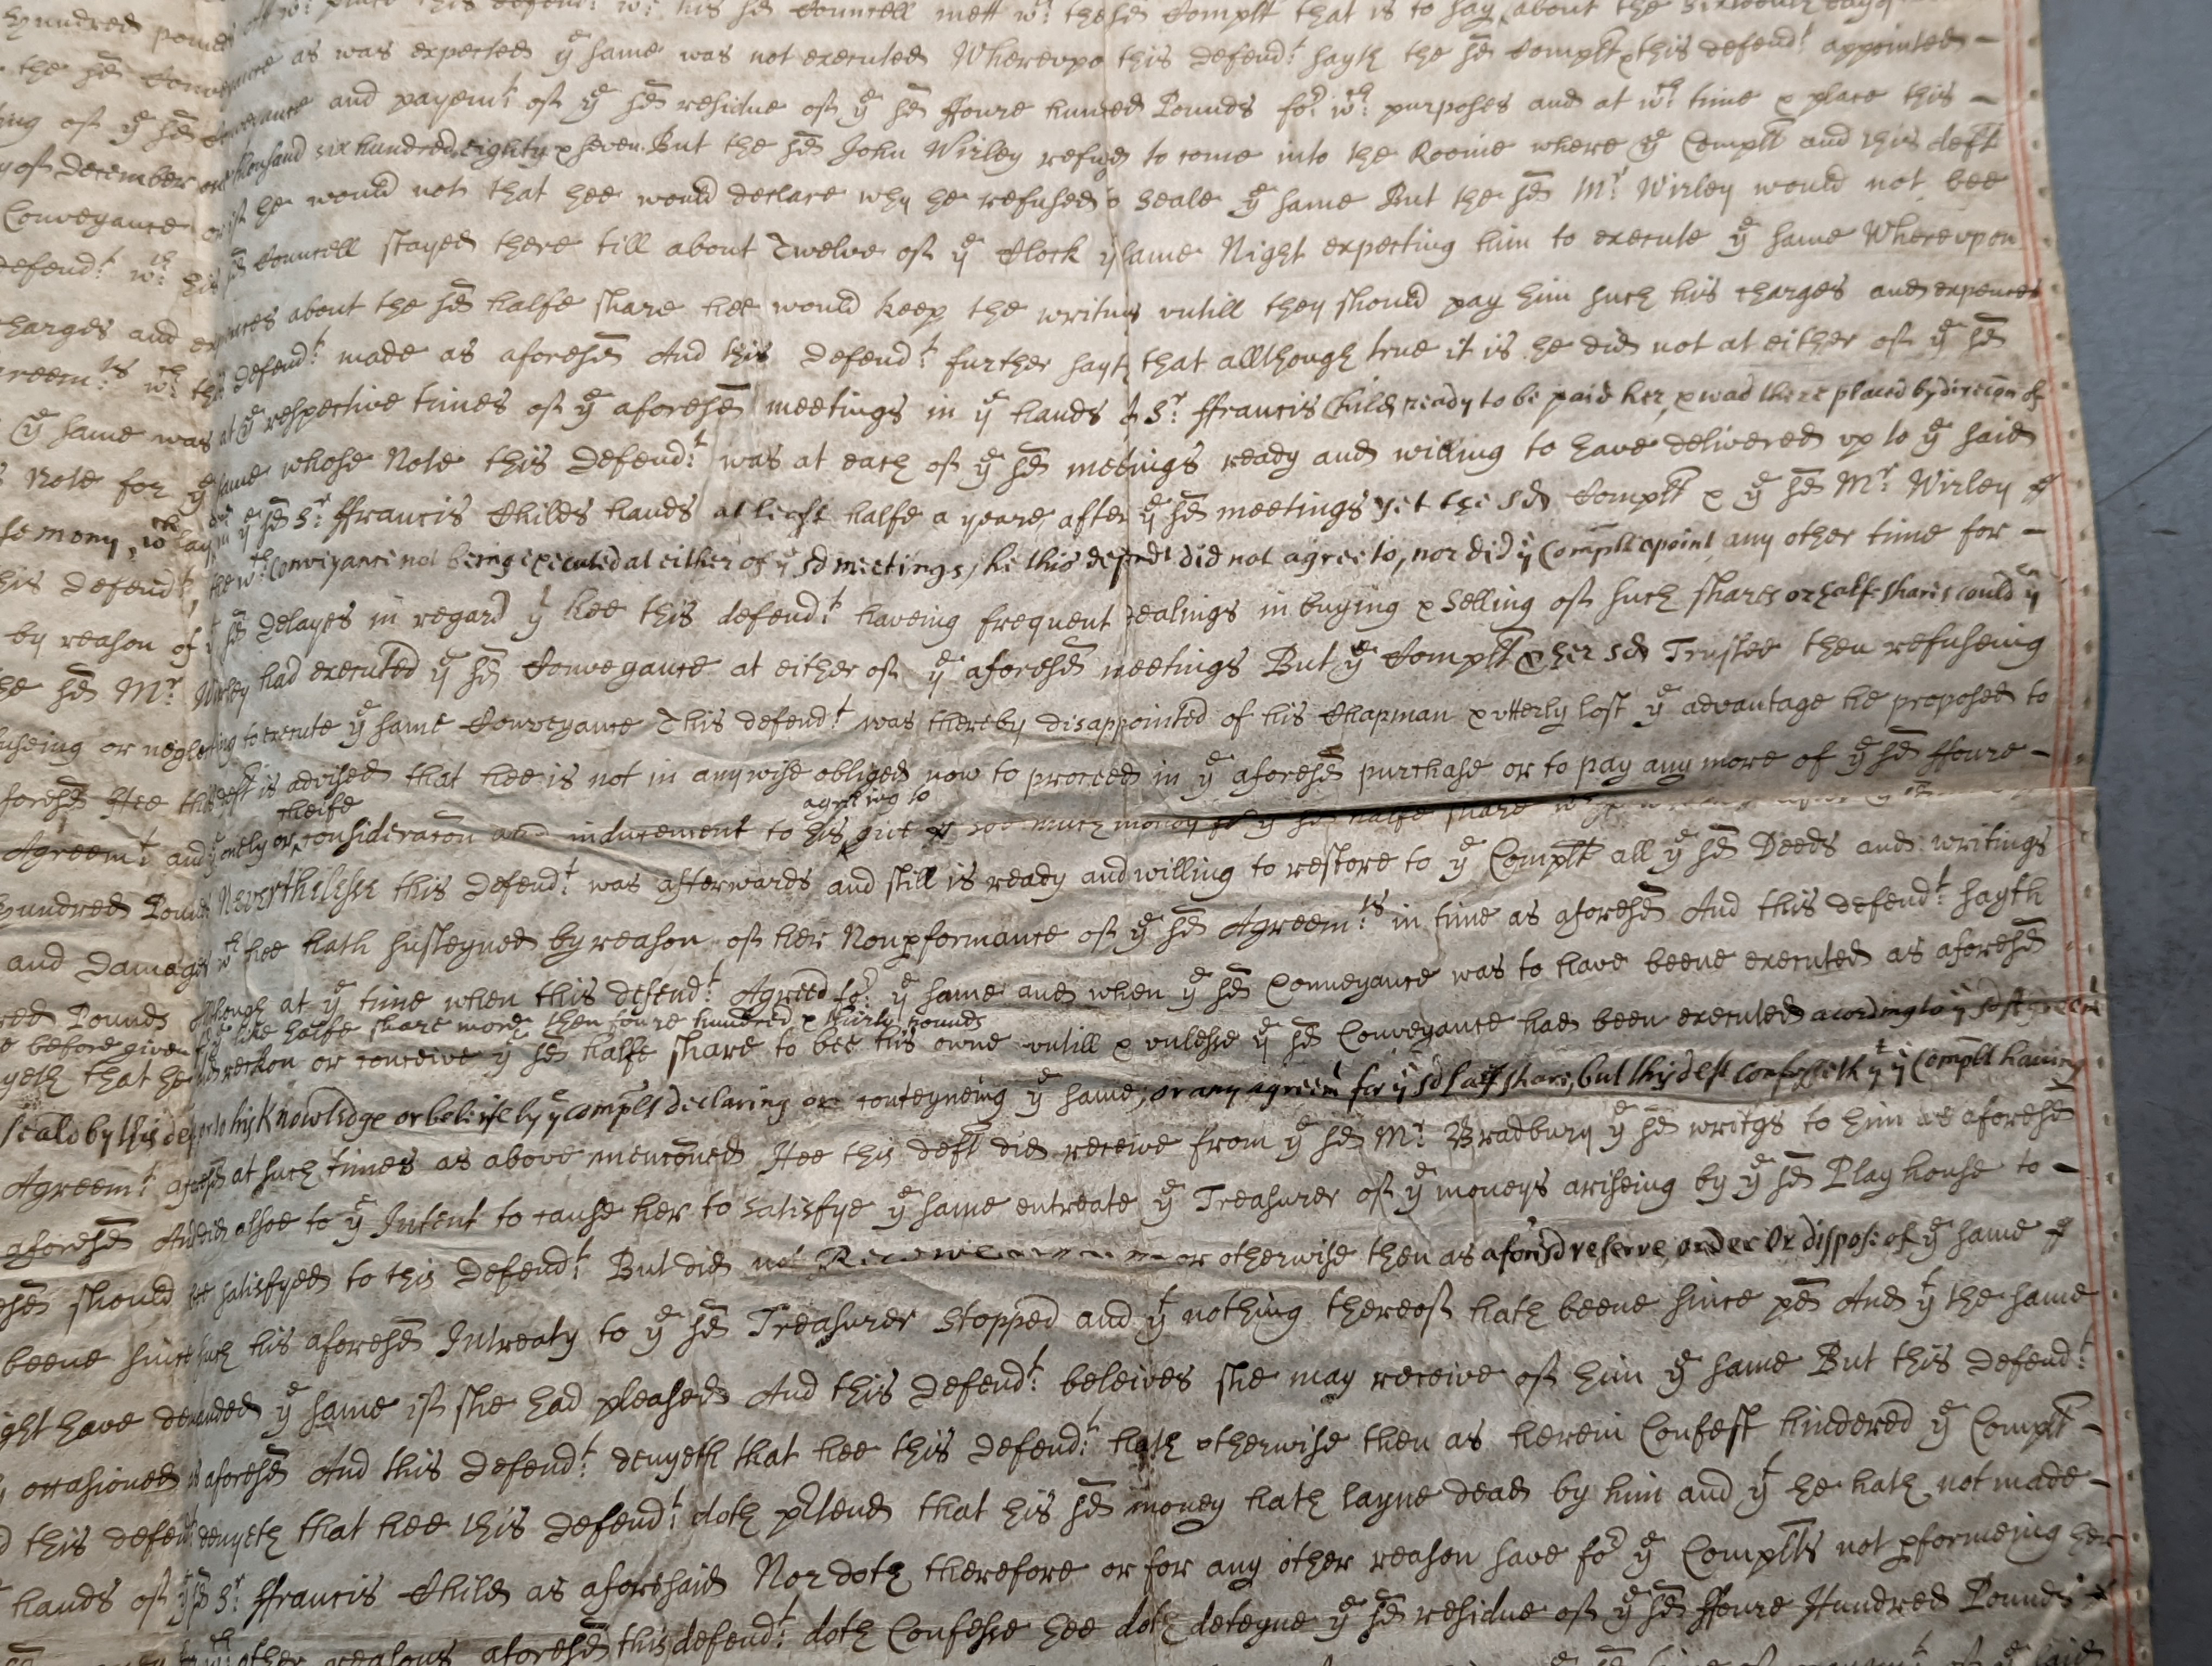 hundred pounds att wch place this defendt wth his sd Councell mett wth these Complt that is to say about the sixteenth day of
the sd Conveyance as was expected ye same was not executed Wherevpo this defendt sayth the sd Complt & this defendt appointed
ing of ye sd Conveyance and payemt of ye sd residue of ye sd ffoure hunred Pounds for wch purposes and at wch time & place this
y of December one thousand six hundred eighty & seven. But the sd John Wirley refused to come into the Roome where ye Complt and this deft
Conveyance or if he would not that hee would declare why he refused to Seale ye same But the sd Mr Wirley would not bee
defendt wth his sd Councell stayed there till about Twelve of ye Clock ye same Night expecting him to execute ye same Wherevpon
charges and expences about the sd halfe share hee would keep the writins vntill they should pay him such his charges and expences
reemts wth the defendt made as aforesd And this defendt further sayth that allthough true it is he did not at either of ye sd
ye same was at ye respective times of ye aforesd meetings in ye hands of Sr ffrancis Child ready to be paid her, & was there placed by direccon of
s Note for ye same whose Note this defendt was at each of ye sd meetings ready and willing to have delivered vp to ye said
se mony, wch lay in ye sd Sr ffrancis Childs hands at least halfe a yeare after ye sd meetings yet the sd Complt & ye sd Mr Wirley
his defendt, the wch Conveyance not being executed at either of ye sd meetings, he this defendt did not agree to, nor did ye Complt apoint any other time for
by reason of ye sd Delayes in regard yt hee this defendt haveing frequent dealings in buying & Selling of such shares or halfe shares could
he sd Mr Wirley had executed ye sd Conveyance at either of ye aforesd meetings But ye Complt & her sd Trustee then refuseing
useing or neglecting to execute ye same Conveyance This defendt was thereby disappointed of his Chapman & vtterly lost ye advantage he proposed to
foresd Hee this deft is advised that hee is not in anywise obliged now to proceed in ye aforesd purchase or to pay any more of ye sd ffoure
Agreemt and ye onely or cheife consideracon and inducement to his agreeing to give so much money for ye sd halfe share
hundred Pounds Neverthelesse this defendt was afterwards and still is ready and willing to restore to ye Complt all ye sd Deeds and writings
and Damages wch hee hath susteyned by reason of her Nonpformance of ye sd Agreemts in time as aforesd And this defendt sayth
red Pounds although at ye time when this defendt Agreed for ye same and when ye sd Conveyance was to have beene executed as aforesd
e before given for ye like halfe share more then foure hundred & thirty pounds
yeth that he did reckon or conceive ye sd halfe share to bee his owne vntill & vnlesse ye sd Conveyance had been executed acording to ye sd Agreemt
seald by this deft or to his Knowledge or beliefe by ye complt declaring or conteyneing ye same, or any agreemt for ye sd halfe share, but this deft confesseth yt ye Complt having
Agreemt aforesd at such times as above menconed Hee this deft did receive from ye sd Mr Bradbury ye sd writgs to him as aforesd
aforesd And did alsoe to ye Intent to cause her to satisfye ye same entreate ye Treasurer of ye moneys ariseing by ye sd Playhouse to
esd should bee satisfyed to this Defendt But did not or otherwise then as aforesd reserve, order or dispose of ye same
beene since such his aforesd Intreaty to ye sd Treasurer Stopped and yt nothing thereof hath beene since pd And yt the same
ight have demanded ye same if she had pleased And this defendt beleives she may receive of him ye same But this defendt
occasioned as aforesd And this defendt denyeth that hee this defendt hath otherwise then as herein Confest hindered ye Complt
d this defendt denyeth that hee this defendt doth pretend that his sd money hath layne dead by him and yt he hath not made
hands of ye sd Sr ffrancis Child as aforesaid Nor doth therefore or for any other reason save for ye Complts not pformeing her
other reasons aforesd this defendt doth Confesse hee doth deteyne ye sd residue of ye sd ffoure Hundred Pounds